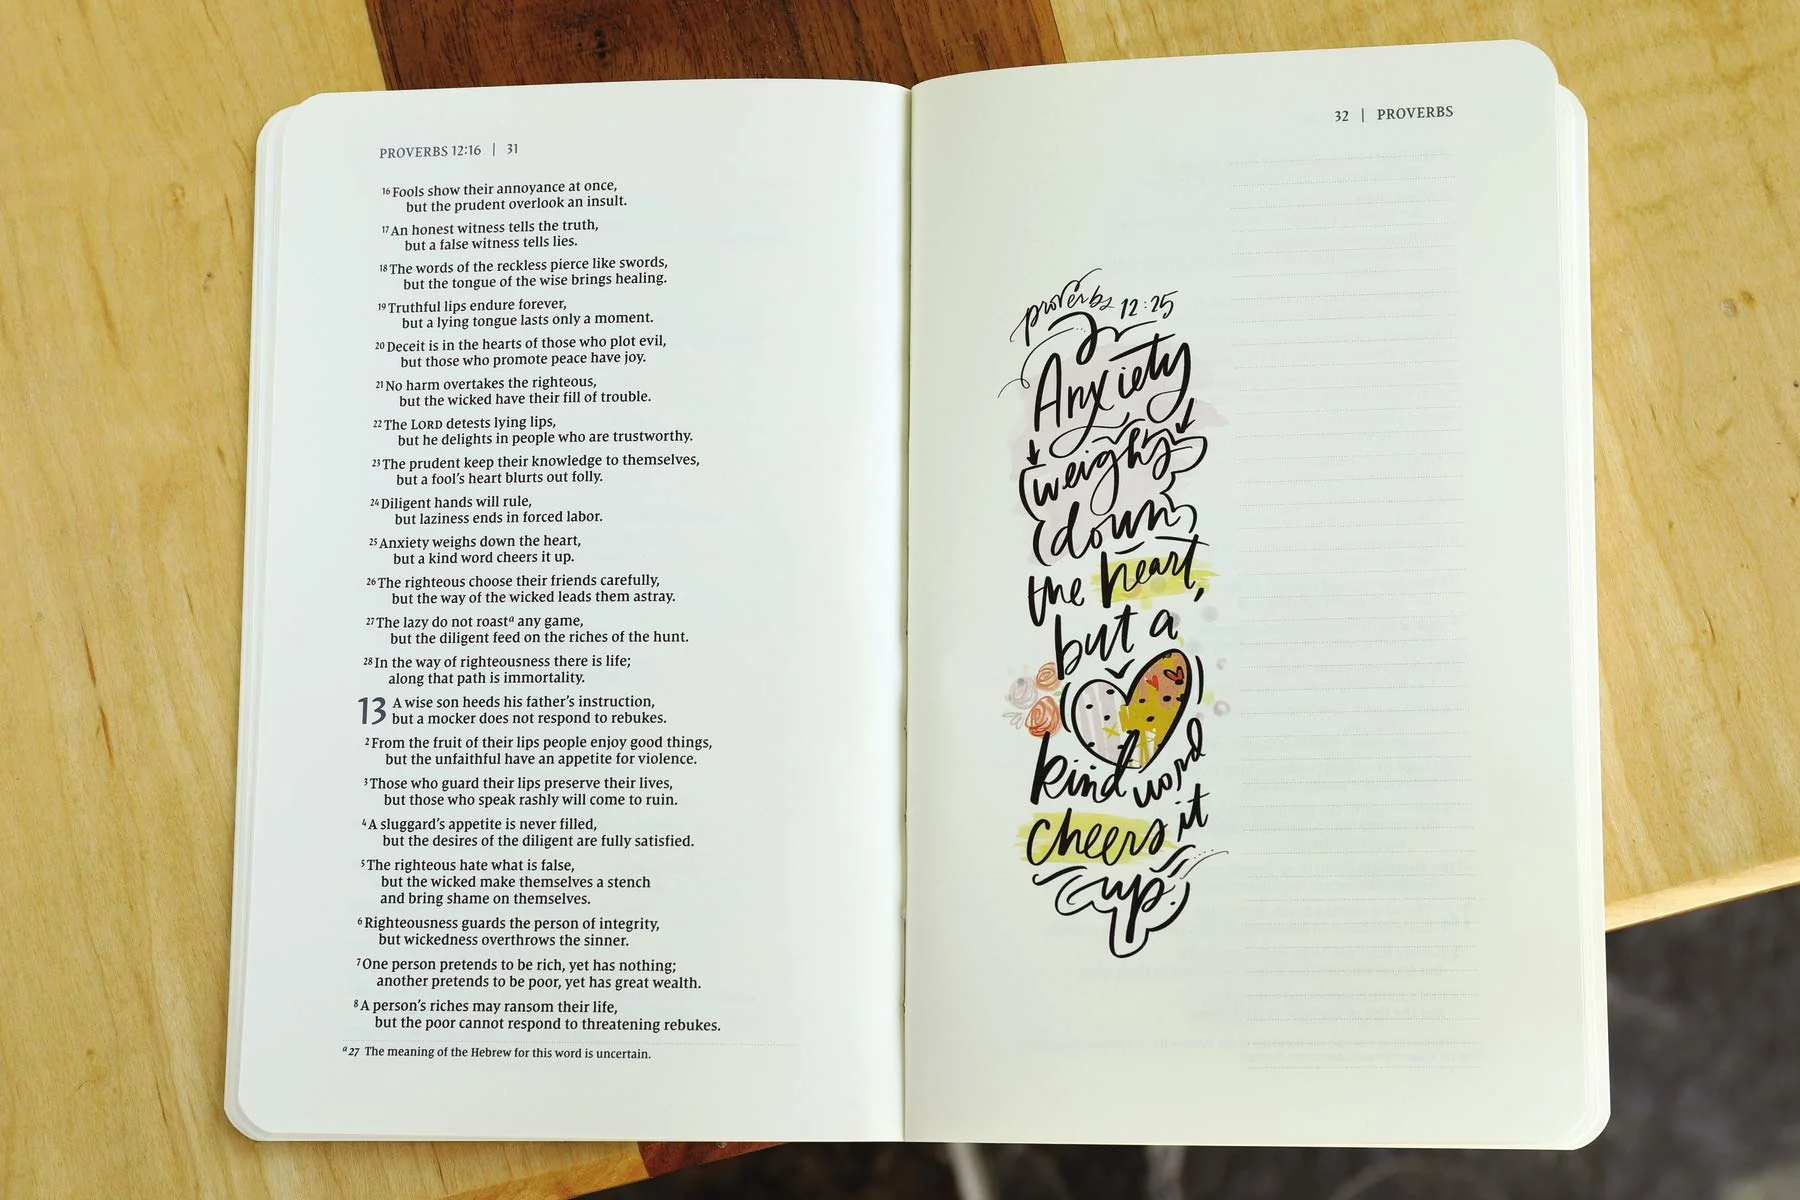 PROVERBS 12:16 | 31
16 Fools show their annoyance at once,
but the prudent overlook an insult.
17 An honest witness tells the truth,
but a false witness tells lies.
18 The words of the reckless pierce like swords,
but the tongue of the wise brings healing.
19 Truthful lips endure forever,
but a lying tongue lasts only a moment.
20 Deceit is in the hearts of those who plot evil,
but those who promote peace have joy.
21 No harm overtakes the righteous,
but the wicked have their fill of trouble.
22 The LORD detests lying lips,
but he delights in people who are trustworthy.
23 The prudent keep their knowledge to themselves,
but a fool's heart blurts out folly.
24 Diligent hands will rule,
but laziness ends in forced labor.
25 Anxiety weighs down the heart,
but a kind word cheers it up.
26 The righteous choose their friends carefully,
but the way of the wicked leads them astray.
27 The lazy do not roast a any game,
but the diligent feed on the riches of the hunt.
28 In the way of righteousness there is life;
along that path is immortality.
13 A wise son heeds his father's instruction,
but a mocker does not respond to rebukes.
2 From the fruit of their lips people enjoy good things,
but the unfaithful have an appetite for violence.
3 Those who guard their lips preserve their lives,
but those who speak rashly will come to ruin.
4 A sluggard's appetite is never filled,
but the desires of the diligent are fully satisfied.
5 The righteous hate what is false,
but the wicked make themselves a stench
and bring shame on themselves.
6 Righteousness guards the person of integrity,
but wickedness overthrows the sinner.
7 One person pretends to be rich, yet has nothing;
another pretends to be poor, yet has great wealth.
8 A person's riches may ransom their life,
but the poor cannot respond to threatening rebukes.
a 27 The meaning of the Hebrew for this word is uncertain.
32 | PROVERBS
proverbs 12:25
Anxiety
weighs
down
the heart,
but a
kind word
cheers it
up.